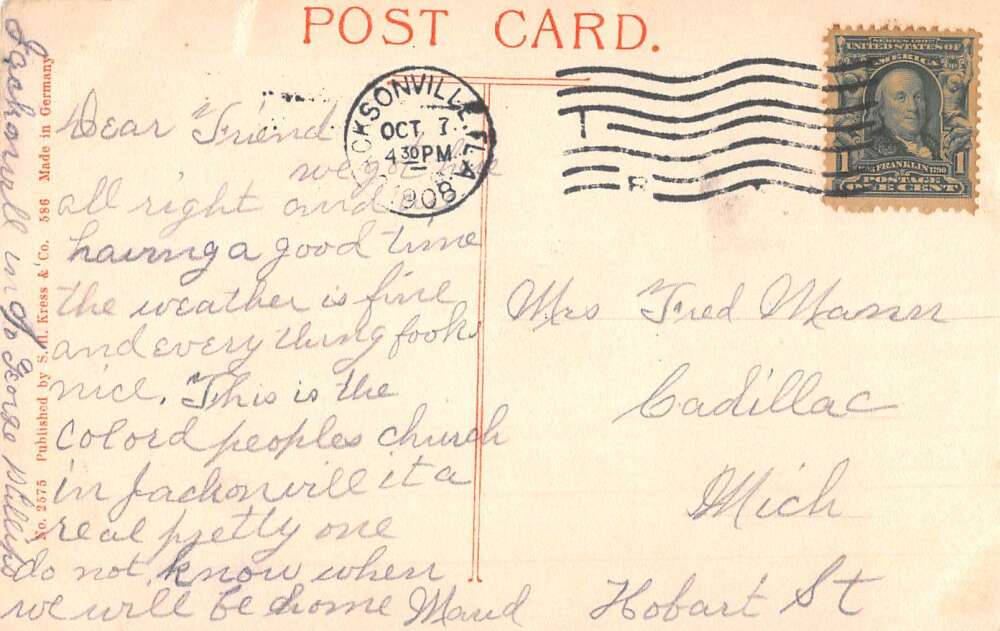 POST CARD.
JACKSONVILLE, FLA
OCT 7
4 30 PM
1908
T
R
SERIES 1902
UNITED STATES OF
AMERICA
1 FRANKLIN 1790 1
POSTAGE
ONE CENT
Dear Friend
we got here
all right and
having a good time
the weather is fine
and every thing looks
nice. This is the
Colord peoples church
in Jackonvill it a
real pretty one
do not know when
we will be home Maud
Mrs Fred Mason
Cadillac
Mich
Hobart St
No. 2575 Published by S.H. Kress & Co. 586 Made in Germany
George Phillips